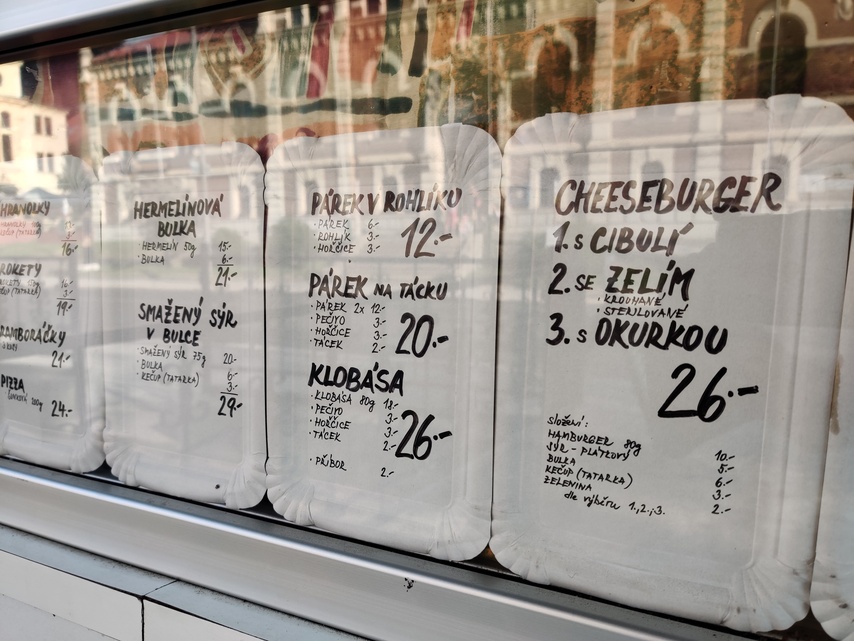 HRANOLKY
KEČUP (TATARKA)
3.-
16.-
ROKETY
16.-
KEČUP (TATARKA) 3.-
19.-
RAMBORÁČKY
21.-
PIZZA
24.-
HERMELÍNOVÁ
BULKA
• HERMELÍN 50g 15.-
• BULKA 6.-
21.-
SMAŽENÝ SÝR
V BULCE
• SMAŽENÝ SÝR 75g 20.-
• BULKA 6.-
• KEČUP (TATARKA) 3.-
29.-
PÁREK V ROHLÍKU
• PÁREK 6.-
• ROHLÍK 3.-
• HOŘČICE 3.-
12.-
PÁREK NA TÁCKU
• PÁREK 2x 12.-
• PEČIVO 3.-
• HOŘČICE 3.-
• TÁCEK 2.-
20.-
KLOBÁSA
• KLOBÁSA 80g 18.-
• PEČIVO 3.-
• HOŘČICE 3.-
• TÁCEK 2.-
26.-
• PŘÍBOR 2.-
CHEESEBURGER
1. S CIBULÍ
2. SE ZELÍM
• KROUHANÉ
• STERILOVANÉ
3. S OKURKOU
26.-
složení:
HAMBURGER 80g 10.-
SÝR - PLÁTKOVÝ 5.-
BULKA 6.-
KEČUP (TATARKA) 3.-
ZELENINA 2.-
dle výběru 1.,2.,3.